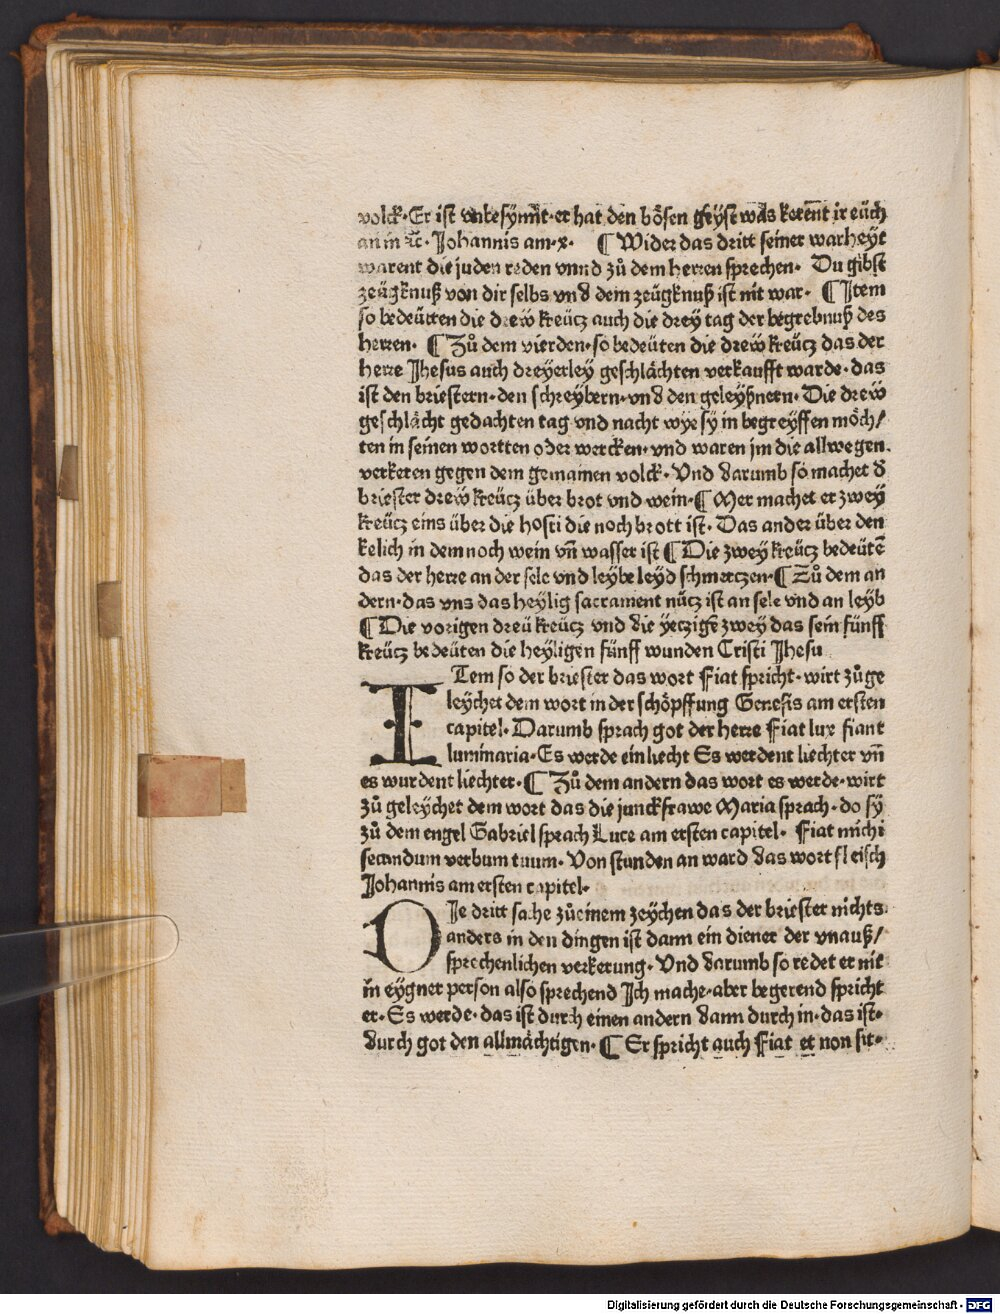 volck· Er ist vnbesynnt· er hat den bösen geyst was kerent ir euch
an in ꝛc̄· Johannis am·x· ¶ Wider das dritt seiner warheyt
warent die juden reden vnnd zů dem herren sprechen· Du gibst
zeügknuß von dir selbs vnd dem zeügknuß ist nit war· ¶ Jtem
so bedeütten die drew kreücz auch die drey tag der begrebnuß des
herren· ¶ Zů dem vierden· so bedeüten die drew kreücz das der
herre Jhesus auch dreyerley geschlächten verkaufft warde· das
ist den briestern· den schreybern· vnd den geleyßnern· Die drew
geschlächt gedachten tag vnd nacht wye sy in begreyffen möch/
ten in seinen wortten oder wercken· vnd waren jm die allwegen
verkeren gegen dem gemainen volck· Vnd darumb so machet d̄
briester drew kreücz über brot vnd wein· ¶ Mer machet er zwey
kreücz eins über die hosti die noch brott ist· Das ander über den
kelich in dem noch wein vn̄ wasser ist ¶ Die zwey kreücz bedeütē
das der herre an der sele vnd leybe leyd schmerczen· ¶ Zů dem an
dern· das vns das heylig sacrament nücz ist an sele vnd an leyb
¶ Die vorigen dreü kreücz vnd die yeczigē zwey das sein fünff
kreücz bedeüten die heyligen fünff wunden Cristi Jhesu
ITem so der briester das wort Fiat spricht· wirt zůge
leychet dem wort in der schöpffung Genesis am ersten
capitel· Darumb sprach got der herre Fiat lux fiant
luminaria· Es werde ein liecht Es werdent liechter vn̄
es wurdent liechter· ¶ Zů dem andern das wort es werde· wirt
zů geleychet dem wort das die junckfrawe Maria sprach· do sy
zů dem engel Gabriel sprach Luce am ersten capitel· Fiat michi
secundum verbum tuum· Von stunden an ward das wort fleisch
Johannis am ersten capitel·
DJe dritt sache zů einem zeychen das der briester nichts
anders in den dingen ist dann ein diener der vnauß/
sprechenlichen verkerung· Vnd darumb so redet er nit
in eygner person also sprechend Jch mache· aber begerend spricht
er· Es werde· das ist durch einen andern dann durch in· das ist·
durch got den allmächtigen· ¶ Er spricht auch Fiat et non sit·
Digitalisierung gefördert durch die Deutsche Forschungsgemeinschaft - DFG